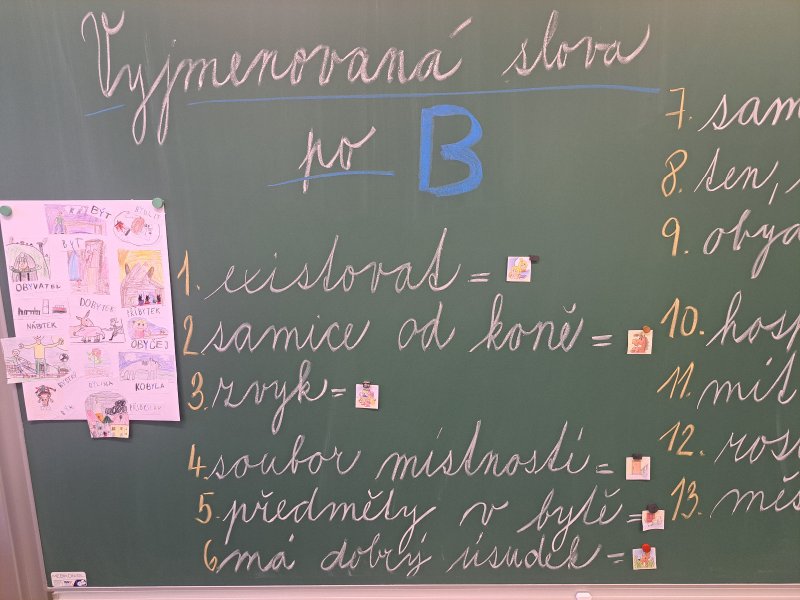 Vyjmenovaná slova
po B
1. existovat =
2. samice od koně =
3. zvyk =
4. soubor místností =
5. předměty v bytě =
6. má dobrý úsudek =
7. sam
8. ten,
9. obya
10. hosp
11. mít
12. ros
13. měs
BÝT
BYT
OBYVATEL
DOBYTEK
PŘÍBYTEK
NÁBYTEK
OBYČEJ
BYSTRÝ
BYLINA
KOBYLA
BÝK